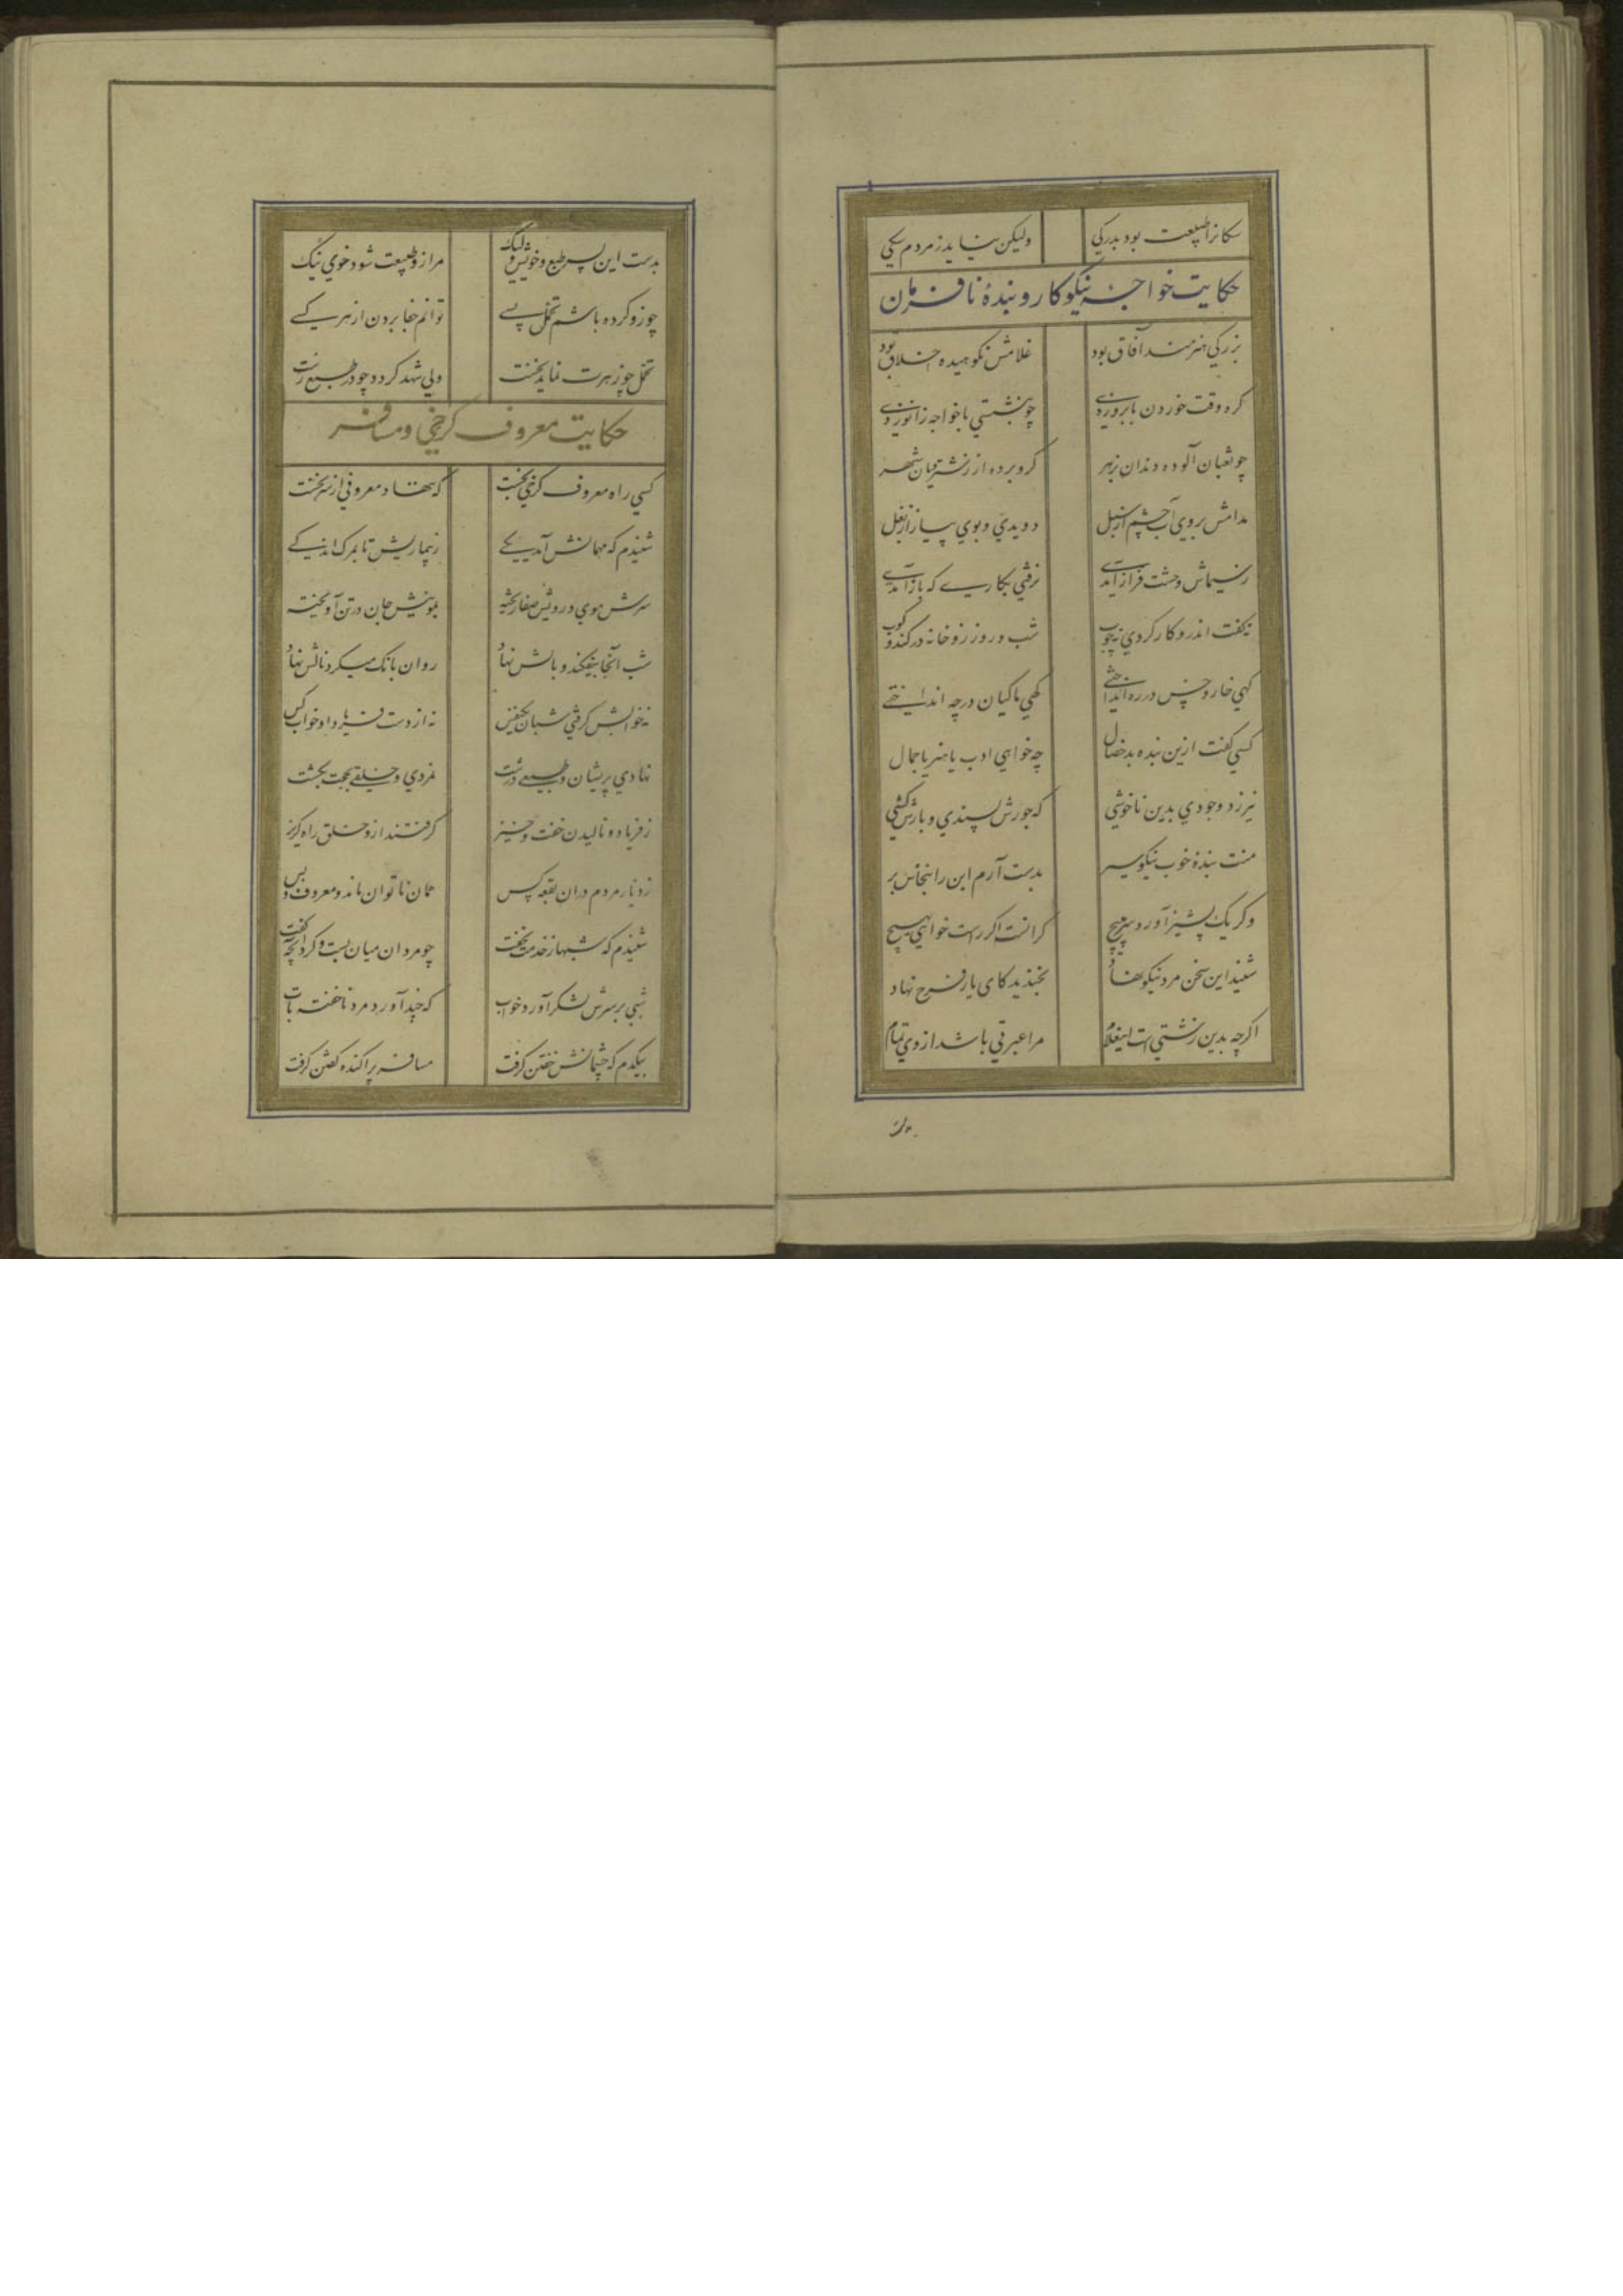 سکانرا طبیعت بود بدرکی ولیکن نیاید ز مردم سکی
حکایت خواجه نیکوکار و بنده نافرمان
بزرکی هنرمند آفاق بود غلامش نکوهیده اخلاق بود
کره وقت خوردن بابرو زدی چو بنشستی با خواجه زانو زدی
چو ثعبان آلوده دندان بزهر کرو برده از زشترویان شهر
مدامش بروی آب چشم از سبل دویدی و بوی پیاز از بغل
نرفتی بکاری که باز آمدی
نکفت اندرو کار کردی نه چوب شب و روز زو خانه در کند و کوب
کهی خار و خس در ره انداختی کهی ماکیان در چه انداختی
کسی کفت ازین بنده بدخصال چه خواهی ادب یا هنر یا جمال
نیرزد وجودی بدین ناخوشی که جورش پسندی و بارش کشی
منت بنده خوب نیکو سیر بدست آرم این را بنخاس بر
وکر یک پشیز آورد سر مپیچ کرانست اکر راست خواهی بهیچ
شنید این سخن مرد نیکو نهاد بخندید کای یار فرخ نهاد
اکرچه بدین زشتی است این غلام مرا عبرتی باشد از وی تمام
بدست این پسر طبع و خویش ولیک مرا زو طبیعت شود خوی نیک
چو زو کرده باشم تحمل بسی توانم جفا بردن از هر کسی
تحمل چو زهرت نماید نخست ولی شهد کردد چو در طبع رست
حکایت معروف کرخی و مسافر
کسی راه معروف کرخی بجست که بنهاد معروفی از سر نخست
شنیدم که مهمانش آمد یکی ز بیماریش تا بمرک اندکی
سرش موی و رویش صفا ریخته بمویش جان در تن آویخته
شب آنجا بیفکند و بالش نهاد روان بانک میکرد نالش نهاد
نه خوابش کرفتی شبان یکنفس نه از دست فریاد او خواب کس
نهادی پریشان و طبعی درشت نمردی و خلقی بحجت بکشت
ز فریاد و نالیدن خفت و خیز کرفتند ازو خلق راه کریز
ز دیار مردم دران بقعه کس همان ناتوان ماند و معروف و بس
شنیدم که شبها ز خدمت نخفت چو مردان میان بست و کرد آنچه کفت
شبی بر سرش لشکر آورد خواب که چند آورد مرد ناخفته تاب
بیکدم که چشمانش خفتن کرفت مسافر پراکنده کفتن کرفت